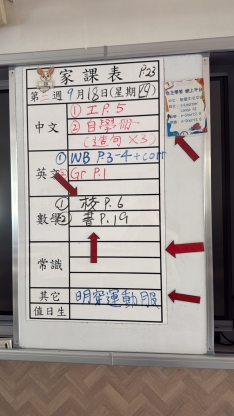 家課表 P.23
第三週 9月18日(星期四)
中文 ① 工 P.5
② 自學冊
(造句 ×3)
英文 ① WB P.3-4 + corr
② Gr P.1
數學 ① 核 P.6
② 書 P.19
常識
其它 明穿運動服
值日生